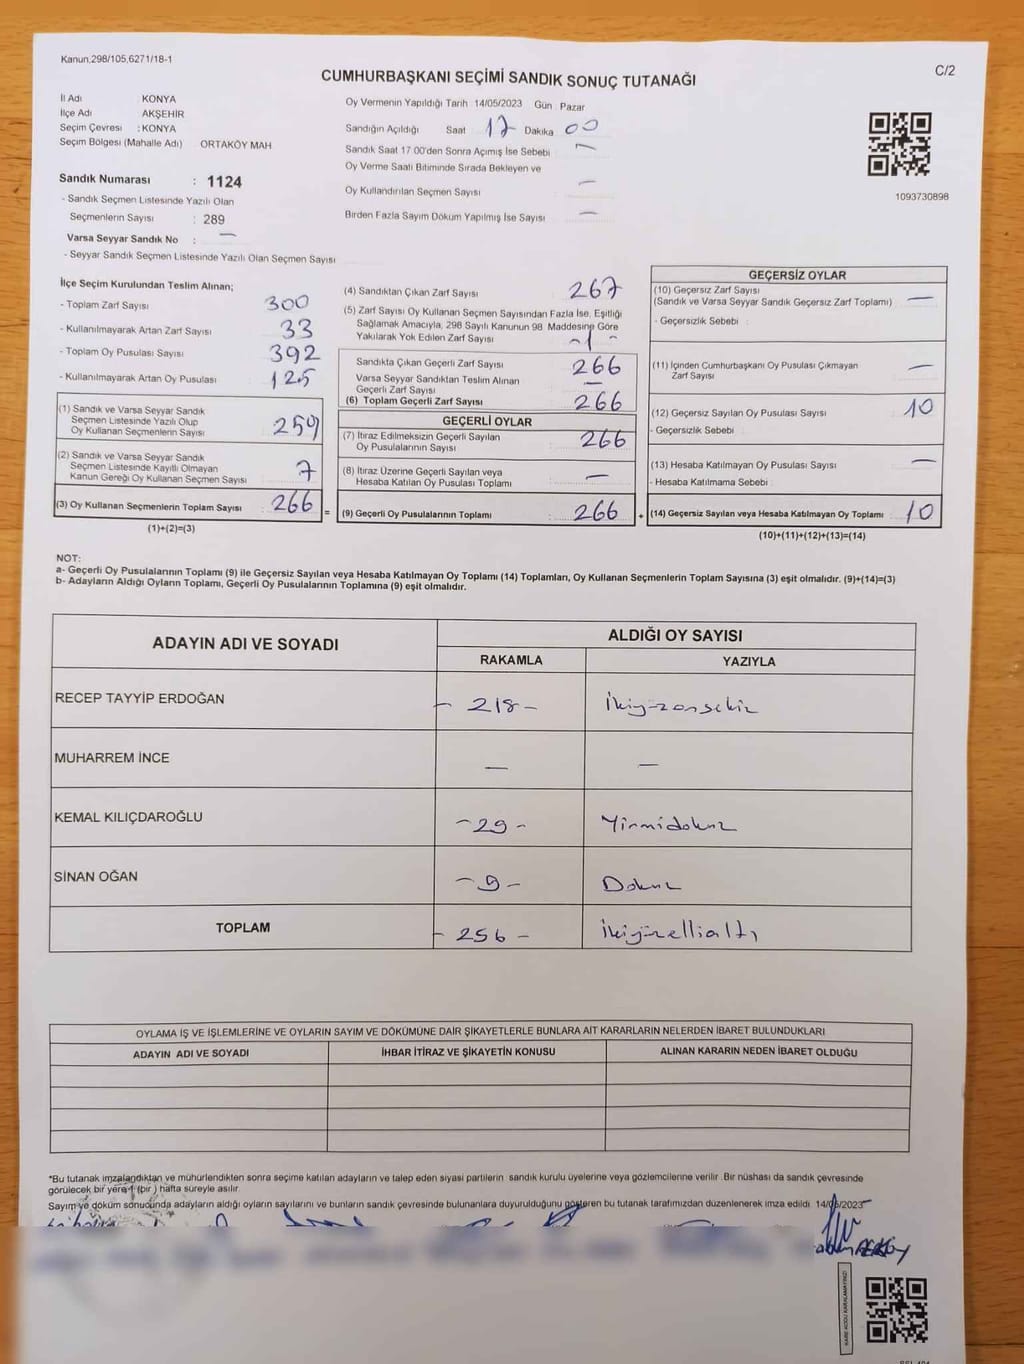 Kanun,298/105,6271/18-1
C/2
CUMHURBAŞKANI SEÇİMİ SANDIK SONUÇ TUTANAĞI
İl Adı KONYA
İlçe Adı AKŞEHİR
Seçim Çevresi : KONYA
Seçim Bölgesi (Mahalle Adı) ORTAKÖY MAH
Sandık Numarası : 1124
- Sandık Seçmen Listesinde Yazılı Olan
Seçmenlerin Sayısı : 289
Varsa Seyyar Sandık No : —
- Seyyar Sandık Seçmen Listesinde Yazılı Olan Seçmen Sayısı
Oy Vermenin Yapıldığı Tarih 14/05/2023 Gün : Pazar
Sandığın Açıldığı Saat 17 Dakika 00
Sandık Saat 17:00'den Sonra Açımış İse Sebebi —
Oy Verme Saati Bitiminde Sırada Bekleyen ve
Oy Kullandırılan Seçmen Sayısı —
Birden Fazla Sayım Döküm Yapılmış İse Sayısı —
1093730898
İlçe Seçim Kurulundan Teslim Alınan;
- Toplam Zarf Sayısı 300
- Kullanılmayarak Artan Zarf Sayısı 33
- Toplam Oy Pusulası Sayısı 392
- Kullanılmayarak Artan Oy Pusulası 125
(1) Sandık ve Varsa Seyyar Sandık
Seçmen Listesinde Yazılı Olup
Oy Kullanan Seçmenlerin Sayısı 259
(2) Sandık ve Varsa Seyyar Sandık
Seçmen Listesinde Kayıtlı Olmayan
Kanun Gereği Oy Kullanan Seçmen Sayısı 7
(3) Oy Kullanan Seçmenlerin Toplam Sayısı 266 =
(1)+(2)=(3)
(4) Sandıktan Çıkan Zarf Sayısı 267
(5) Zarf Sayısı Oy Kullanan Seçmen Sayısından Fazla İse, Eşitliği
Sağlamak Amacıyla, 298 Sayılı Kanunun 98. Maddesine Göre
Yakılarak Yok Edilen Zarf Sayısı -1-
Sandıkta Çıkan Geçerli Zarf Sayısı 266
Varsa Seyyar Sandıktan Teslim Alınan
Geçerli Zarf Sayısı —
(6) Toplam Geçerli Zarf Sayısı 266
GEÇERLİ OYLAR
(7) İtiraz Edilmeksizin Geçerli Sayılan
Oy Pusulalarının Sayısı 266
(8) İtiraz Üzerine Geçerli Sayılan veya
Hesaba Katılan Oy Pusulası Toplamı —
(9) Geçerli Oy Pusulalarının Toplamı 266 +
GEÇERSİZ OYLAR
(10) Geçersiz Zarf Sayısı
(Sandık ve Varsa Seyyar Sandık Geçersiz Zarf Toplamı) —
- Geçersizlik Sebebi :
(11) İçinden Cumhurbaşkanı Oy Pusulası Çıkmayan
Zarf Sayısı —
(12) Geçersiz Sayılan Oy Pusulası Sayısı 10
- Geçersizlik Sebebi :
(13) Hesaba Katılmayan Oy Pusulası Sayısı —
- Hesaba Katılmama Sebebi :
(14) Geçersiz Sayılan veya Hesaba Katılmayan Oy Toplamı 10
(10)+(11)+(12)+(13)=(14)
NOT:
a- Geçerli Oy Pusulalarının Toplamı (9) ile Geçersiz Sayılan veya Hesaba Katılmayan Oy Toplamı (14) Toplamları, Oy Kullanan Seçmenlerin Toplam Sayısına (3) eşit olmalıdır. (9)+(14)=(3)
b- Adayların Aldığı Oyların Toplamı, Geçerli Oy Pusulalarının Toplamına (9) eşit olmalıdır.
ADAYIN ADI VE SOYADI ALDIĞI OY SAYISI
RAKAMLA YAZIYLA
RECEP TAYYİP ERDOĞAN - 218 - İkiyüzonsekiz
MUHARREM İNCE — —
KEMAL KILIÇDAROĞLU - 29 - Yirmidokuz
SİNAN OĞAN - 9 - Dokuz
TOPLAM - 256 - İkiyüzellialtı
OYLAMA İŞ VE İŞLEMLERİNE VE OYLARIN SAYIM VE DÖKÜMÜNE DAİR ŞİKAYETLERLE BUNLARA AİT KARARLARIN NELERDEN İBARET BULUNDUKLARI
ADAYIN ADI VE SOYADI İHBAR İTİRAZ VE ŞİKAYETİN KONUSU ALINAN KARARIN NEDEN İBARET OLDUĞU
*Bu tutanak imzalandıktan ve mühürlendikten sonra seçime katılan adayların ve talep eden siyasi partilerin sandık kurulu üyelerine veya gözlemcilerine verilir. Bir nüshası da sandık çevresinde
görülecek bir yere 1 (bir ) hafta süreyle asılır.
Sayım ve döküm sonucunda adayların aldığı oyların sayılarını ve bunların sandık çevresinde bulunanlara duyurulduğunu gösteren bu tutanak tarafımızdan düzenlenerek imza edildi. 14/05/2023